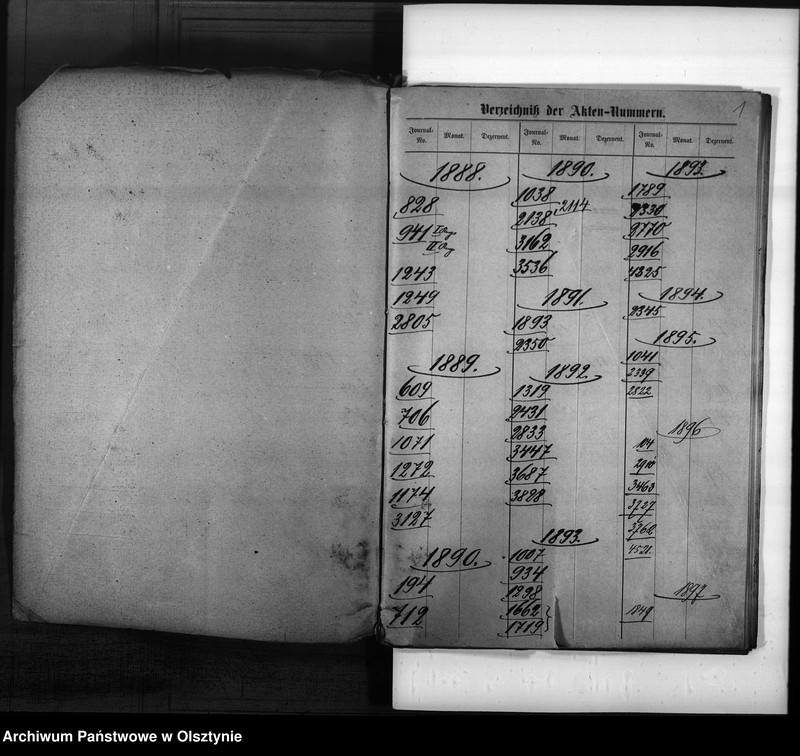 1
Verzeichniß der Akten-Nummern.
Journal-No. Monat. Dezernent. Journal-No. Monat. Dezernent. Journal-No. Monat. Dezernent.
1888.
828
941 I Ang
II Ang
1243
1249
2805
1889.
609
706
1071
1272
1174
3127
1890.
194
712
1890.
1038
2138 2114
3162
3536
1891.
1893
2350
1892.
1319
2431
2833
3447
3687
3828
1893.
1007
934
1298
1662
1719
1893.
1789
2330
2770
2916
4325
1894.
2345
1895.
1041
2339
2822
1896
104
3463
3727
3762
4521
1897
1849
Archiwum Państwowe w Olsztynie